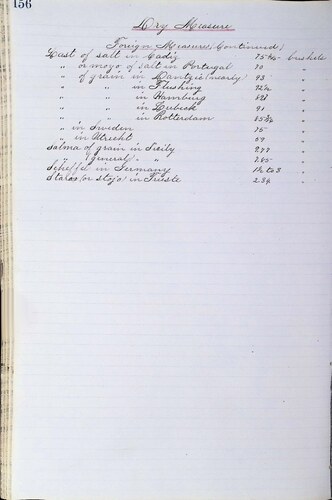 156
Dry Measure
Foreign Measures (Continued)
Last of salt in Cadiz 75 4/5 bushels
" or moyo of salt in Portugal 70 "
" of grain in Dantzic (nearly) 93 "
" " in Flushing "
" " in Hamburg "
" " in Lubeck 91 "
" " in Rotterdam "
" in Sweden 75 "
" in Utrecht 59 "
Salma of grain in Sicily 9.77 "
" (general) " " 7.85 "
Scheffel in Germany to 3 "
Staro (or stajo) in Trieste 2.34 "